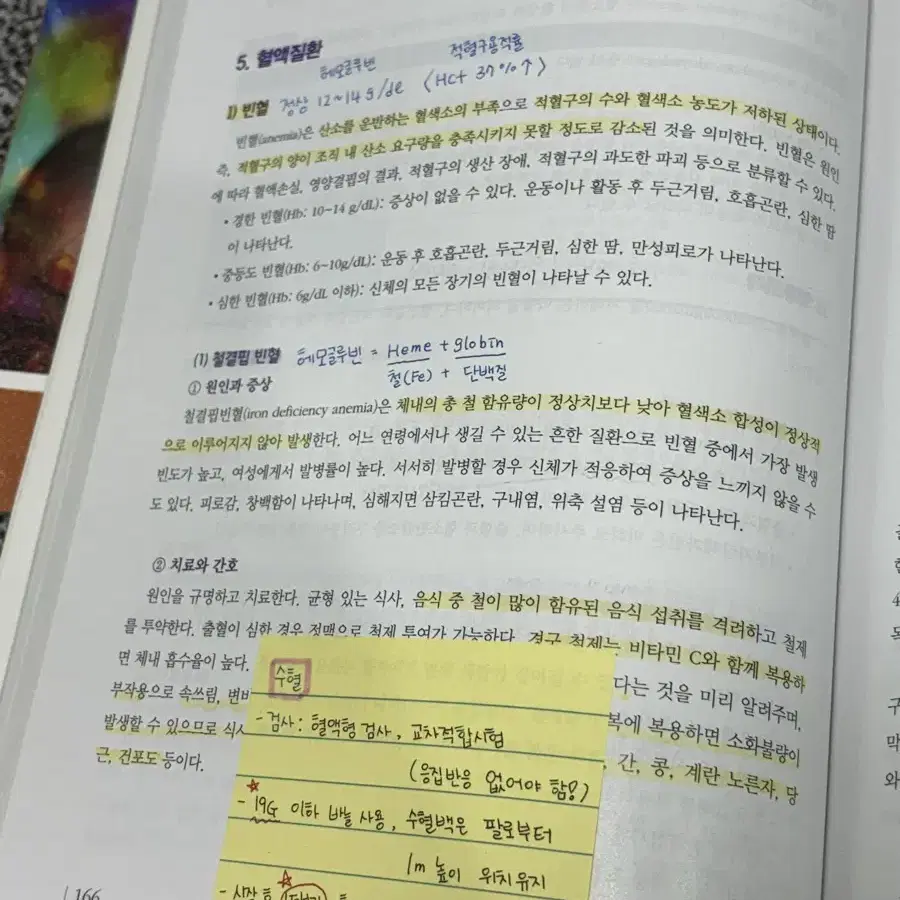 5. 혈액질환
헤모글루빈 적혈구용적률
1) 빈혈 정상 12~14 g/dl (Hct 37%↑)
빈혈(anemia)은 산소를 운반하는 혈색소의 부족으로 적혈구의 수와 혈색소 농도가 저하된 상태이다.
즉, 적혈구의 양이 조직 내 산소 요구량을 충족시키지 못할 정도로 감소된 것을 의미한다. 빈혈은 원인
에 따라 혈액손실, 영양결핍의 결과, 적혈구의 생산 장애, 적혈구의 과도한 파괴 등으로 분류할 수 있다.
• 경한 빈혈(Hb: 10~14 g/dL): 증상이 없을 수 있다. 운동이나 활동 후 두근거림, 호흡곤란, 심한 땀
이 나타난다.
• 중등도 빈혈(Hb: 6~10g/dL): 운동 후 호흡곤란, 두근거림, 심한 땀, 만성피로가 나타난다.
• 심한 빈혈(Hb: 6g/dL 이하): 신체의 모든 장기의 빈혈이 나타날 수 있다.
(1) 철결핍 빈혈 헤모글루빈 = Heme + globin
철(Fe) + 단백질
① 원인과 증상
철결핍빈혈(iron deficiency anemia)은 체내의 총 철 함유량이 정상치보다 낮아 혈색소 합성이 정상적
으로 이루어지지 않아 발생한다. 어느 연령에서나 생길 수 있는 흔한 질환으로 빈혈 중에서 가장 발생
빈도가 높고, 여성에게서 발병률이 높다. 서서히 발병할 경우 신체가 적응하여 증상을 느끼지 않을 수
도 있다. 피로감, 창백함이 나타나며, 심해지면 삼킴곤란, 구내염, 위축 설염 등이 나타난다.
② 치료와 간호
원인을 규명하고 치료한다. 균형 있는 식사, 음식 중 철이 많이 함유된 음식 섭취를 격려하고 철제
를 투약한다. 출혈이 심한 경우 정맥으로 철제 투여가 가능하다. 경구 철제는 비타민 C와 함께 복용하
면 체내 흡수율이 높다. 다는 것을 미리 알려주며,
부작용으로 속쓰림, 변비 복에 복용하면 소화불량이
발생할 수 있으므로 식사 , 간, 콩, 계란 노른자, 당
근, 건포도 등이다.
수혈
- 검사: 혈액형 검사, 교차적합시험
(응집반응 없어야 함!)
- 19G 이하 바늘 사용, 수혈백은 팔로부터
1m 높이 위치 유지
- 시작 후
166